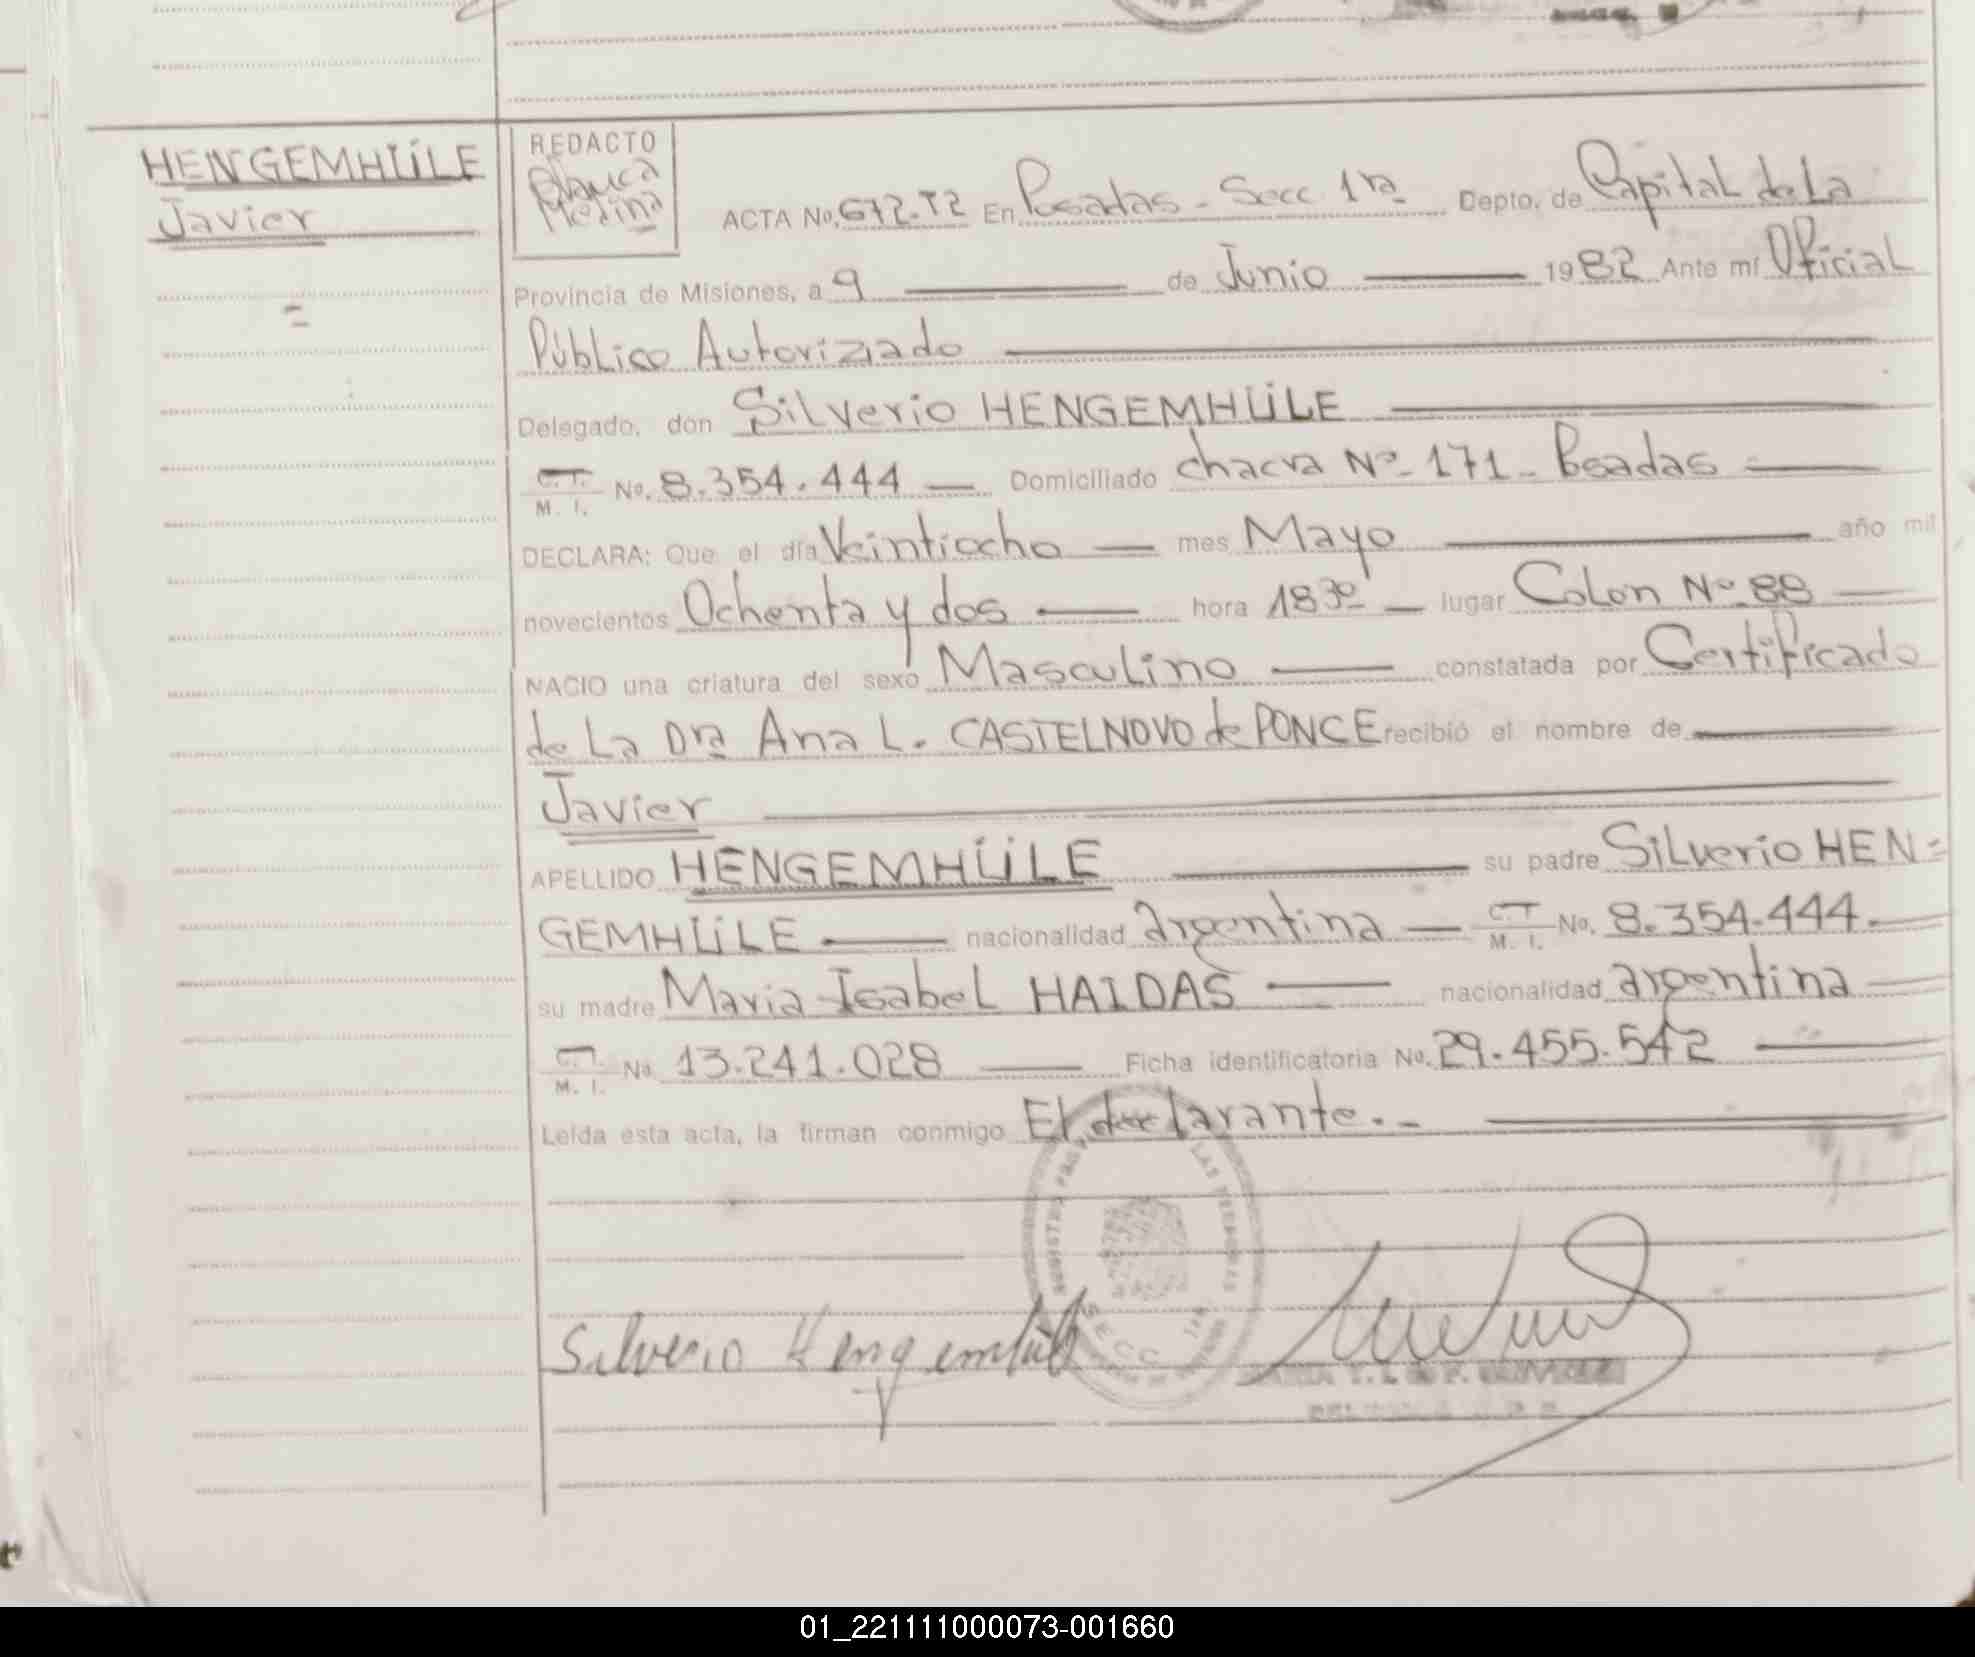 HENGEMHÜLE
Javier
=
REDACTO
Blanca
Medina
ACTA No. 672.T2 En Posadas - Secc. 1ra Depto. de Capital de La
Provincia de Misiones, a 9 de Junio 1982 Ante mí Oficial
Público Autorizado
Delegado, don Silverio HENGEMHÜLE
C.I. M. I. No. 8.354.444 — Domiciliado chacra Nº 171 - Posadas
DECLARA: Que el día Veintiocho — mes Mayo año mil
novecientos Ochenta y dos — hora 18³⁰ — lugar Colon Nº 88
NACIO una criatura del sexo Masculino — constatada por Certificado
de La Dra Ana L. CASTELNOVO de PONCE recibió el nombre de
Javier
APELLIDO HENGEMHÜLE su padre Silverio HEN=
GEMHÜLE — nacionalidad argentina — C.I. M. I. No. 8.354.444.
su madre Maria Isabel HAIDAS — nacionalidad argentina
C.I. M. I. No. 13.241.028 — Ficha identificatoria No. 29.455.542
Leída esta acta, la firman conmigo El declarante.-
LAS PERSONAS
SECC 1RA
Silverio Hengemhüle
01_221111000073-001660